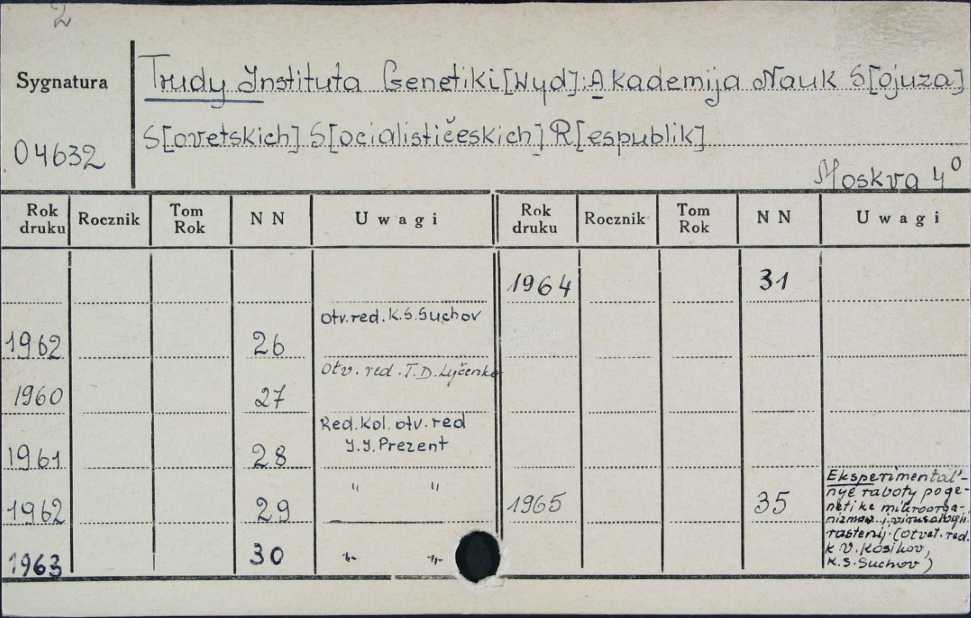 2
Sygnatura
04632
Trudy Instituta Genetiki [Wyd]: Akademija Nauk S[ojuza]
S[ovetskich] S[ocialističeskich] R[espublik]
Moskva 4⁰
Rok druku Rocznik Tom Rok N N Uwagi Rok druku Rocznik Tom Rok N N Uwagi
1964 31
1962 26 Otv. red. K.S. Suchov
1960 27 Otv. red. T.D. Lyčenko
1961 28 Red. kol. otv. red
I.I. Prezent
1962 29 " "
1963 30 " "
1965 35 Eksperimental'-
nyé raboty po ge-
netike mikroorga-
nizmov i virusologii
rastenij. (otvet. red.
K.V. Kosikov,
K.S. Suchov)